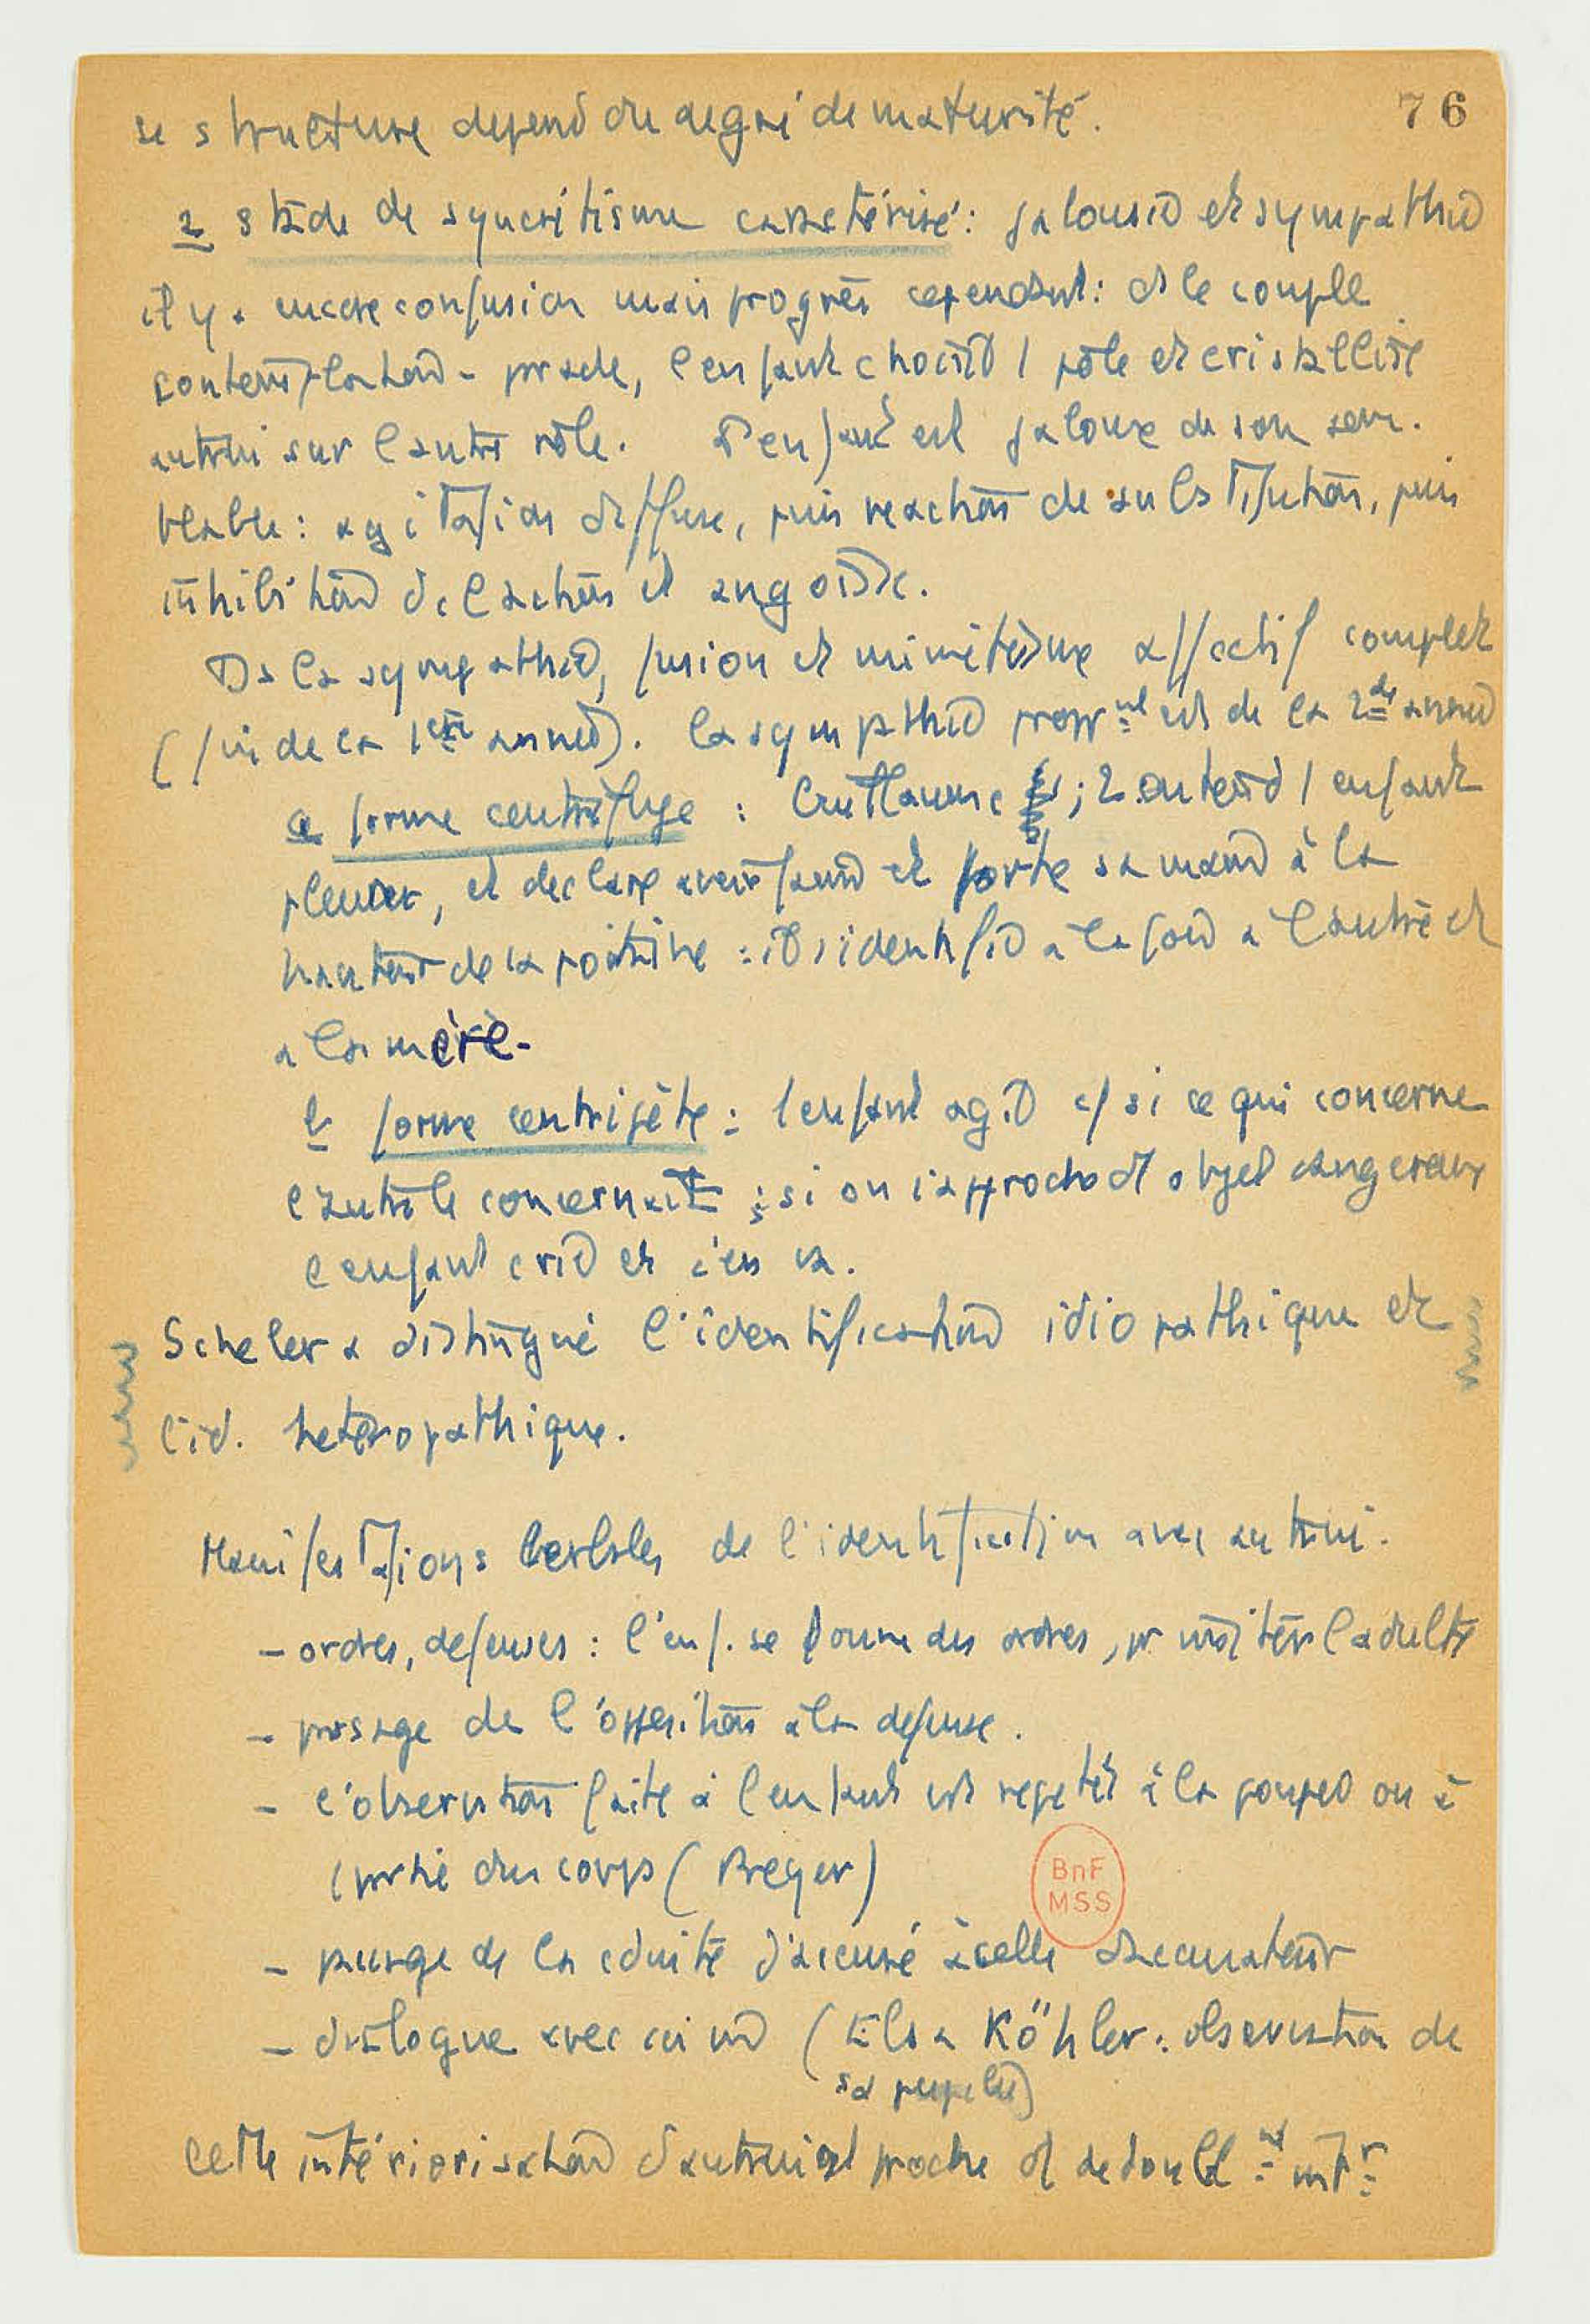 76
se structure depend du degré de maturité.
2 stade de syncrétisme caractérisé : jalousie et sympathie
il y a encore confusion mais progrès cependant : ds le couple
contemplation - parade, l'enfant choisit 1 rôle et cristallise
autrui sur l'autre rôle. L'enfant est jaloux de son sem-
blable : agitation diffuse, puis reaction de substitution, puis
inhibition de l'action et angoisse.
Ds la sympathie, fusion et mimétisme affectif complet
(fin de la 1ère année). la sympathie propr nt est de la 2de année
a forme centrifuge : Guillaume ; 2 entend 1 enfant
pleurer, et declare avoir faim et porte sa main à la
hauteur de la poitrine : il s'identifie a la fois a l'autre et
a la mère.
b forme centripète : l'enfant agit c/ si ce qui concerne
l'autre le concernait ; si on s'approche d'1 objet dangereux
l'enfant crie et s'en va.
Scheler a distingué l'identification idiopathique et
l'id. heteropathique.
Manifestations verbales de l'identification avec autrui.
- ordres, defenses : l'enf. se donne des ordres, pr imiter l'adulte
- passage de l'opposition à la defense.
- l'observation faite à l'enfant est repetée à la poupée ou à
1 partie du corps (Preyer)
- passage de la cduite d'accusé à celle d'accusateur
- dialogue avec soi mm (Elsa Köhler : observation de
sa pupille)
cette intériorisation d'autrui est proche d'1 dedoubl nt intr